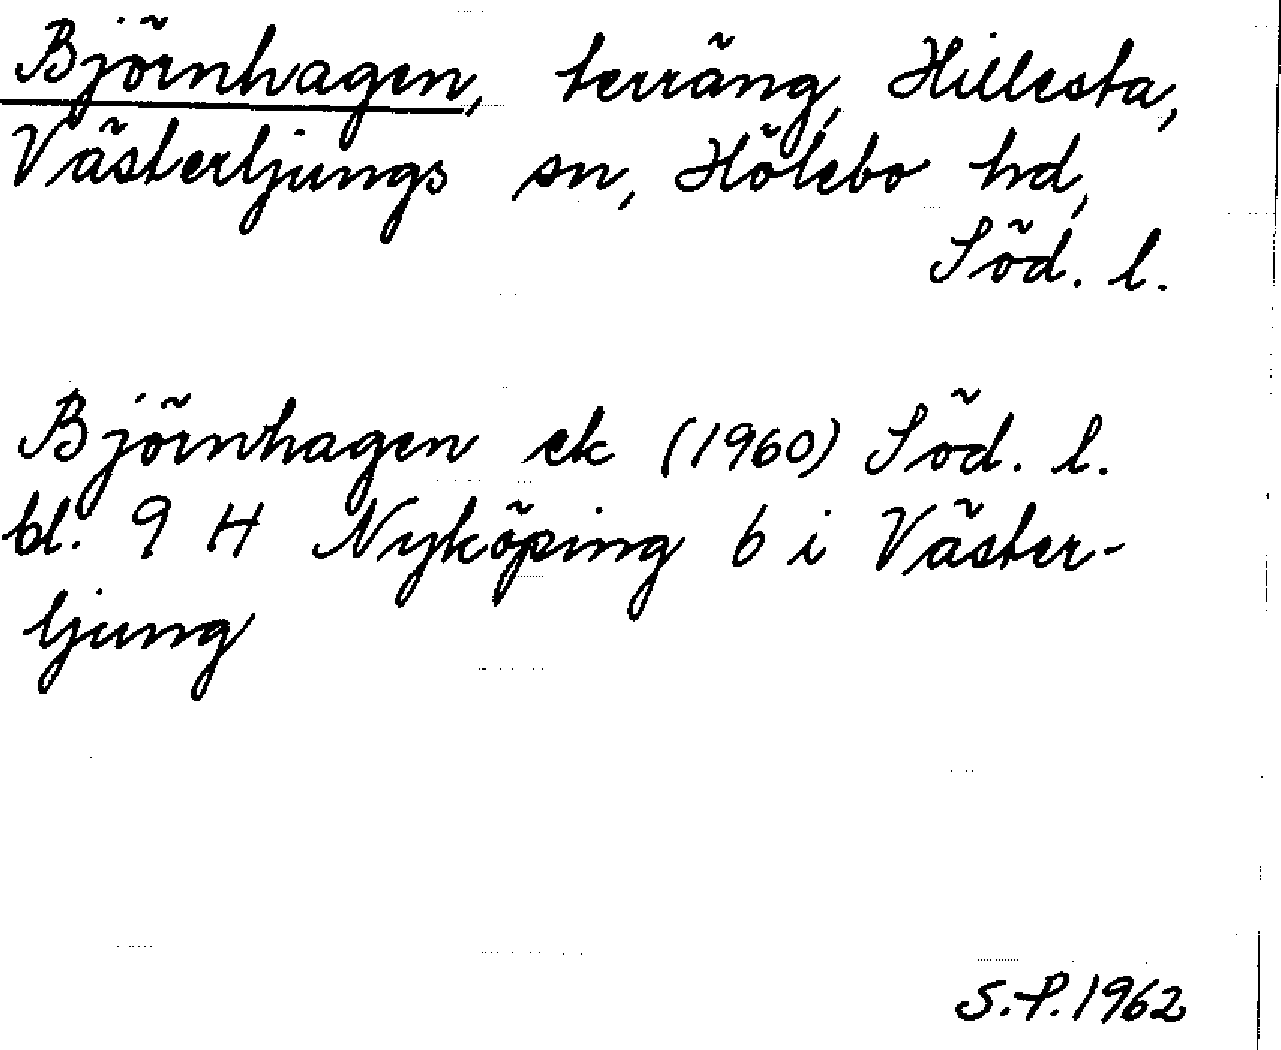 Björnhagen, terräng, Hillesta,
Västerljungs sn, Hölebo hd,
Söd. l.
Björnhagen ek (1960) Söd. l.
bl. 9 H Nyköping 6 i Väster-
ljung
S.P. 1962